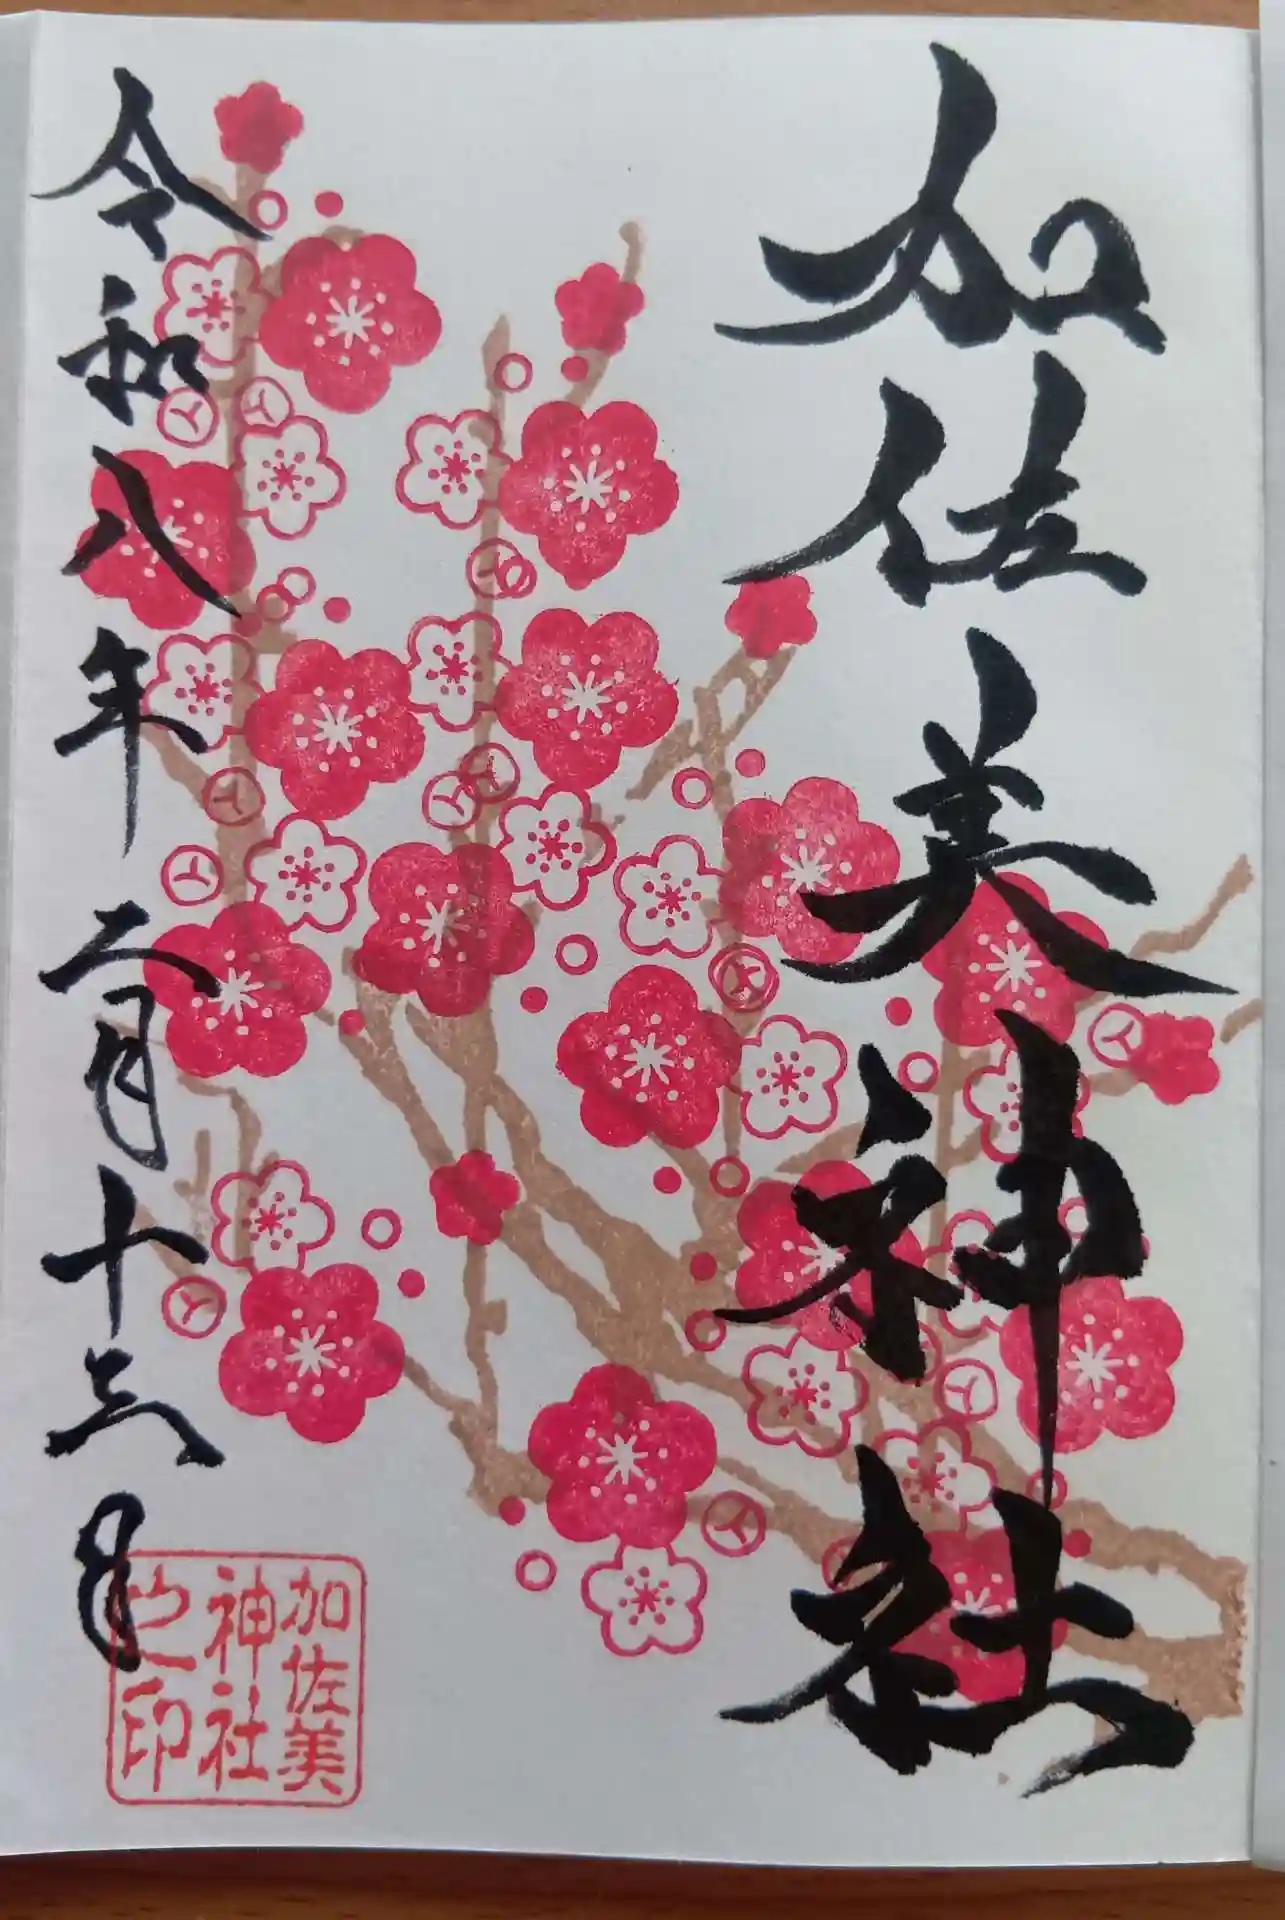 加佐美神社
令和八年二月十三日
加佐美
神社
之印